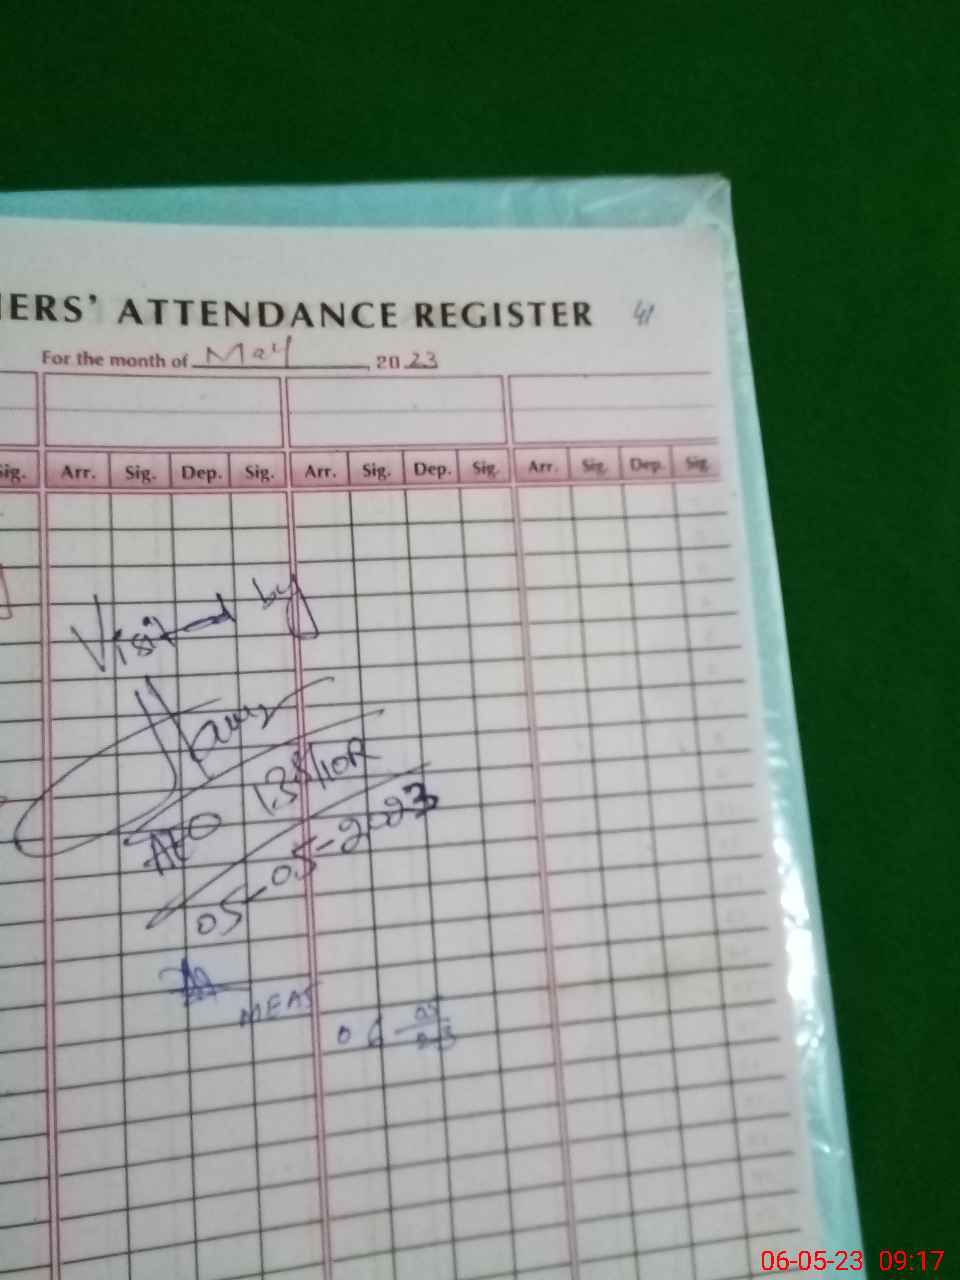 ERS' ATTENDANCE REGISTER 41
For the month of May, 2023
Sig. Arr. Sig. Dep. Sig. Arr. Sig. Dep. Sig. Arr. Sig. Dep. Sig.
Visited by
AEO
05-05-2023
MEAS
06-05-23 09:17